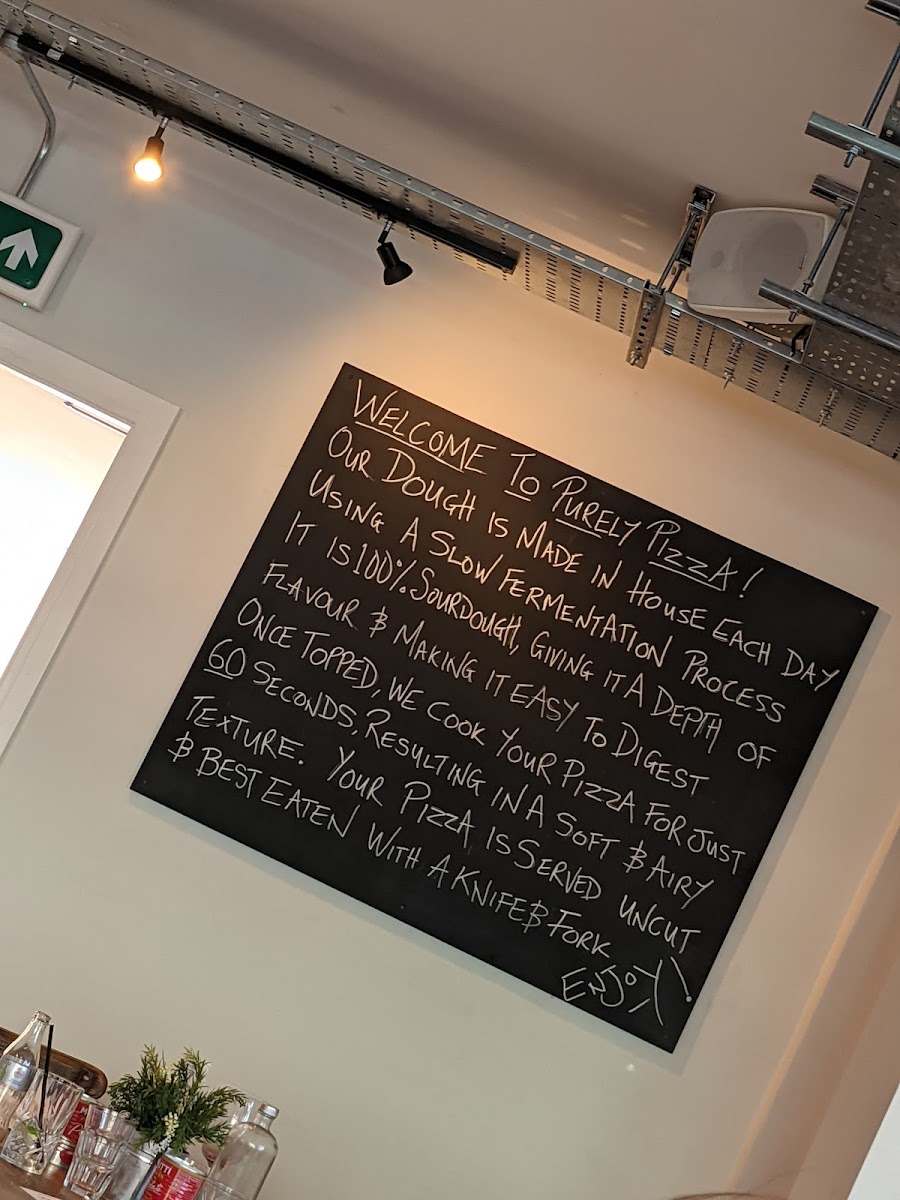 WELCOME TO PURELY PIZZA!
OUR DOUGH IS MADE IN HOUSE EACH DAY
USING A SLOW FERMENTATION PROCESS
IT IS 100% SOURDOUGH, GIVING IT A DEPTH OF
FLAVOUR & MAKING IT EASY TO DIGEST
ONCE TOPPED, WE COOK YOUR PIZZA FOR JUST
60 SECONDS, RESULTING IN A SOFT & AIRY
TEXTURE. YOUR PIZZA IS SERVED UNCUT
& BEST EATEN WITH A KNIFE & FORK